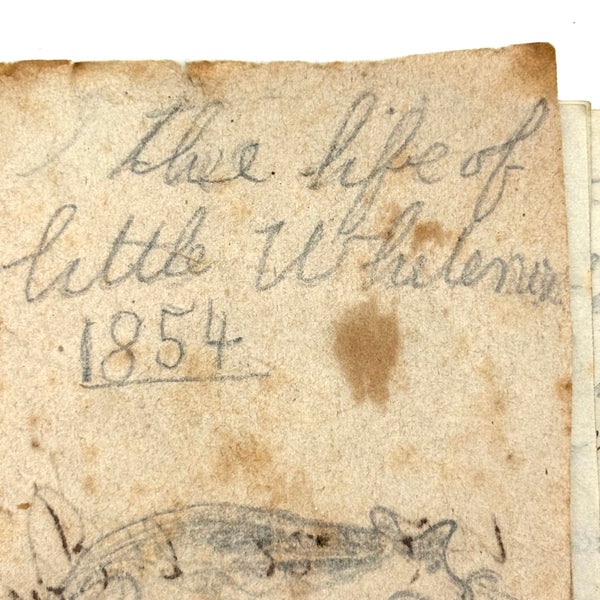 The life of
little Whilemin
1854